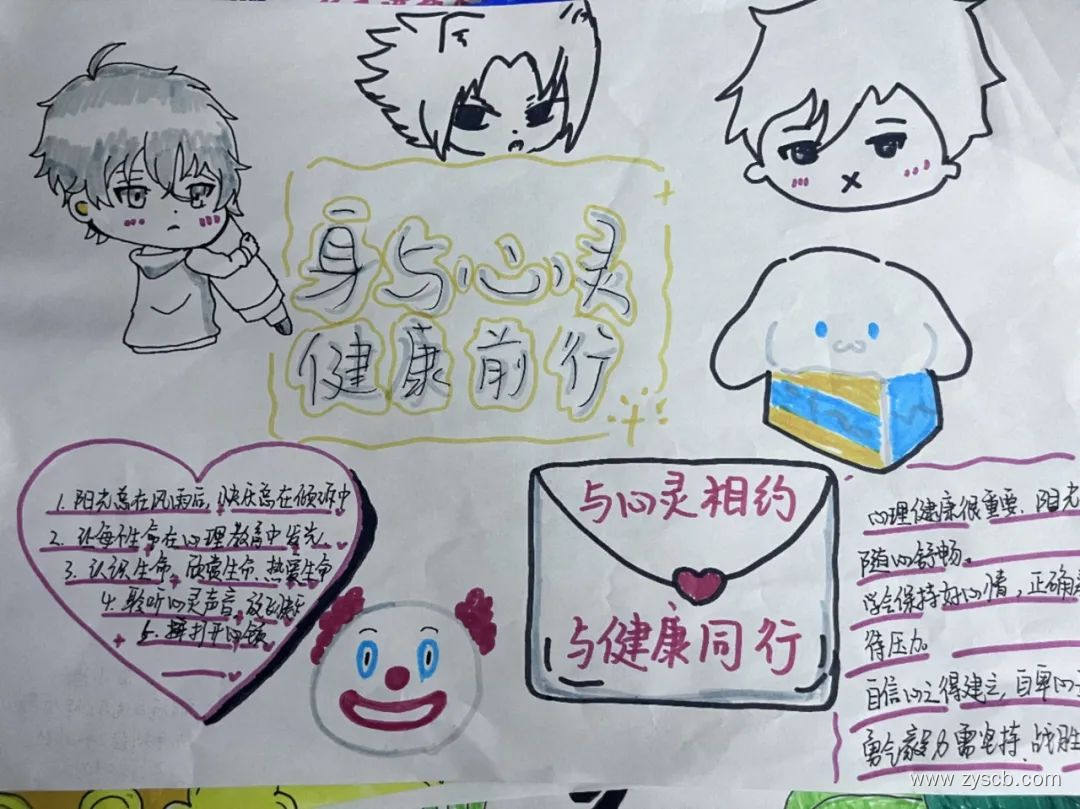 身与心灵
健康前行
1. 阳光总在风雨后, 快乐总在倾诉中
2. 让每个生命在心理教育中发光
3. 认识生命, 欣赏生命、热爱生命
4. 聆听心灵声音,
5.
与心灵相约
与健康同行
心理健康很重要、阳光
随心舒畅。
学会保持好心情,正确
待压力。
自信心之得建立,自卑心
勇气毅力需坚持、战胜
www.zyscb.com